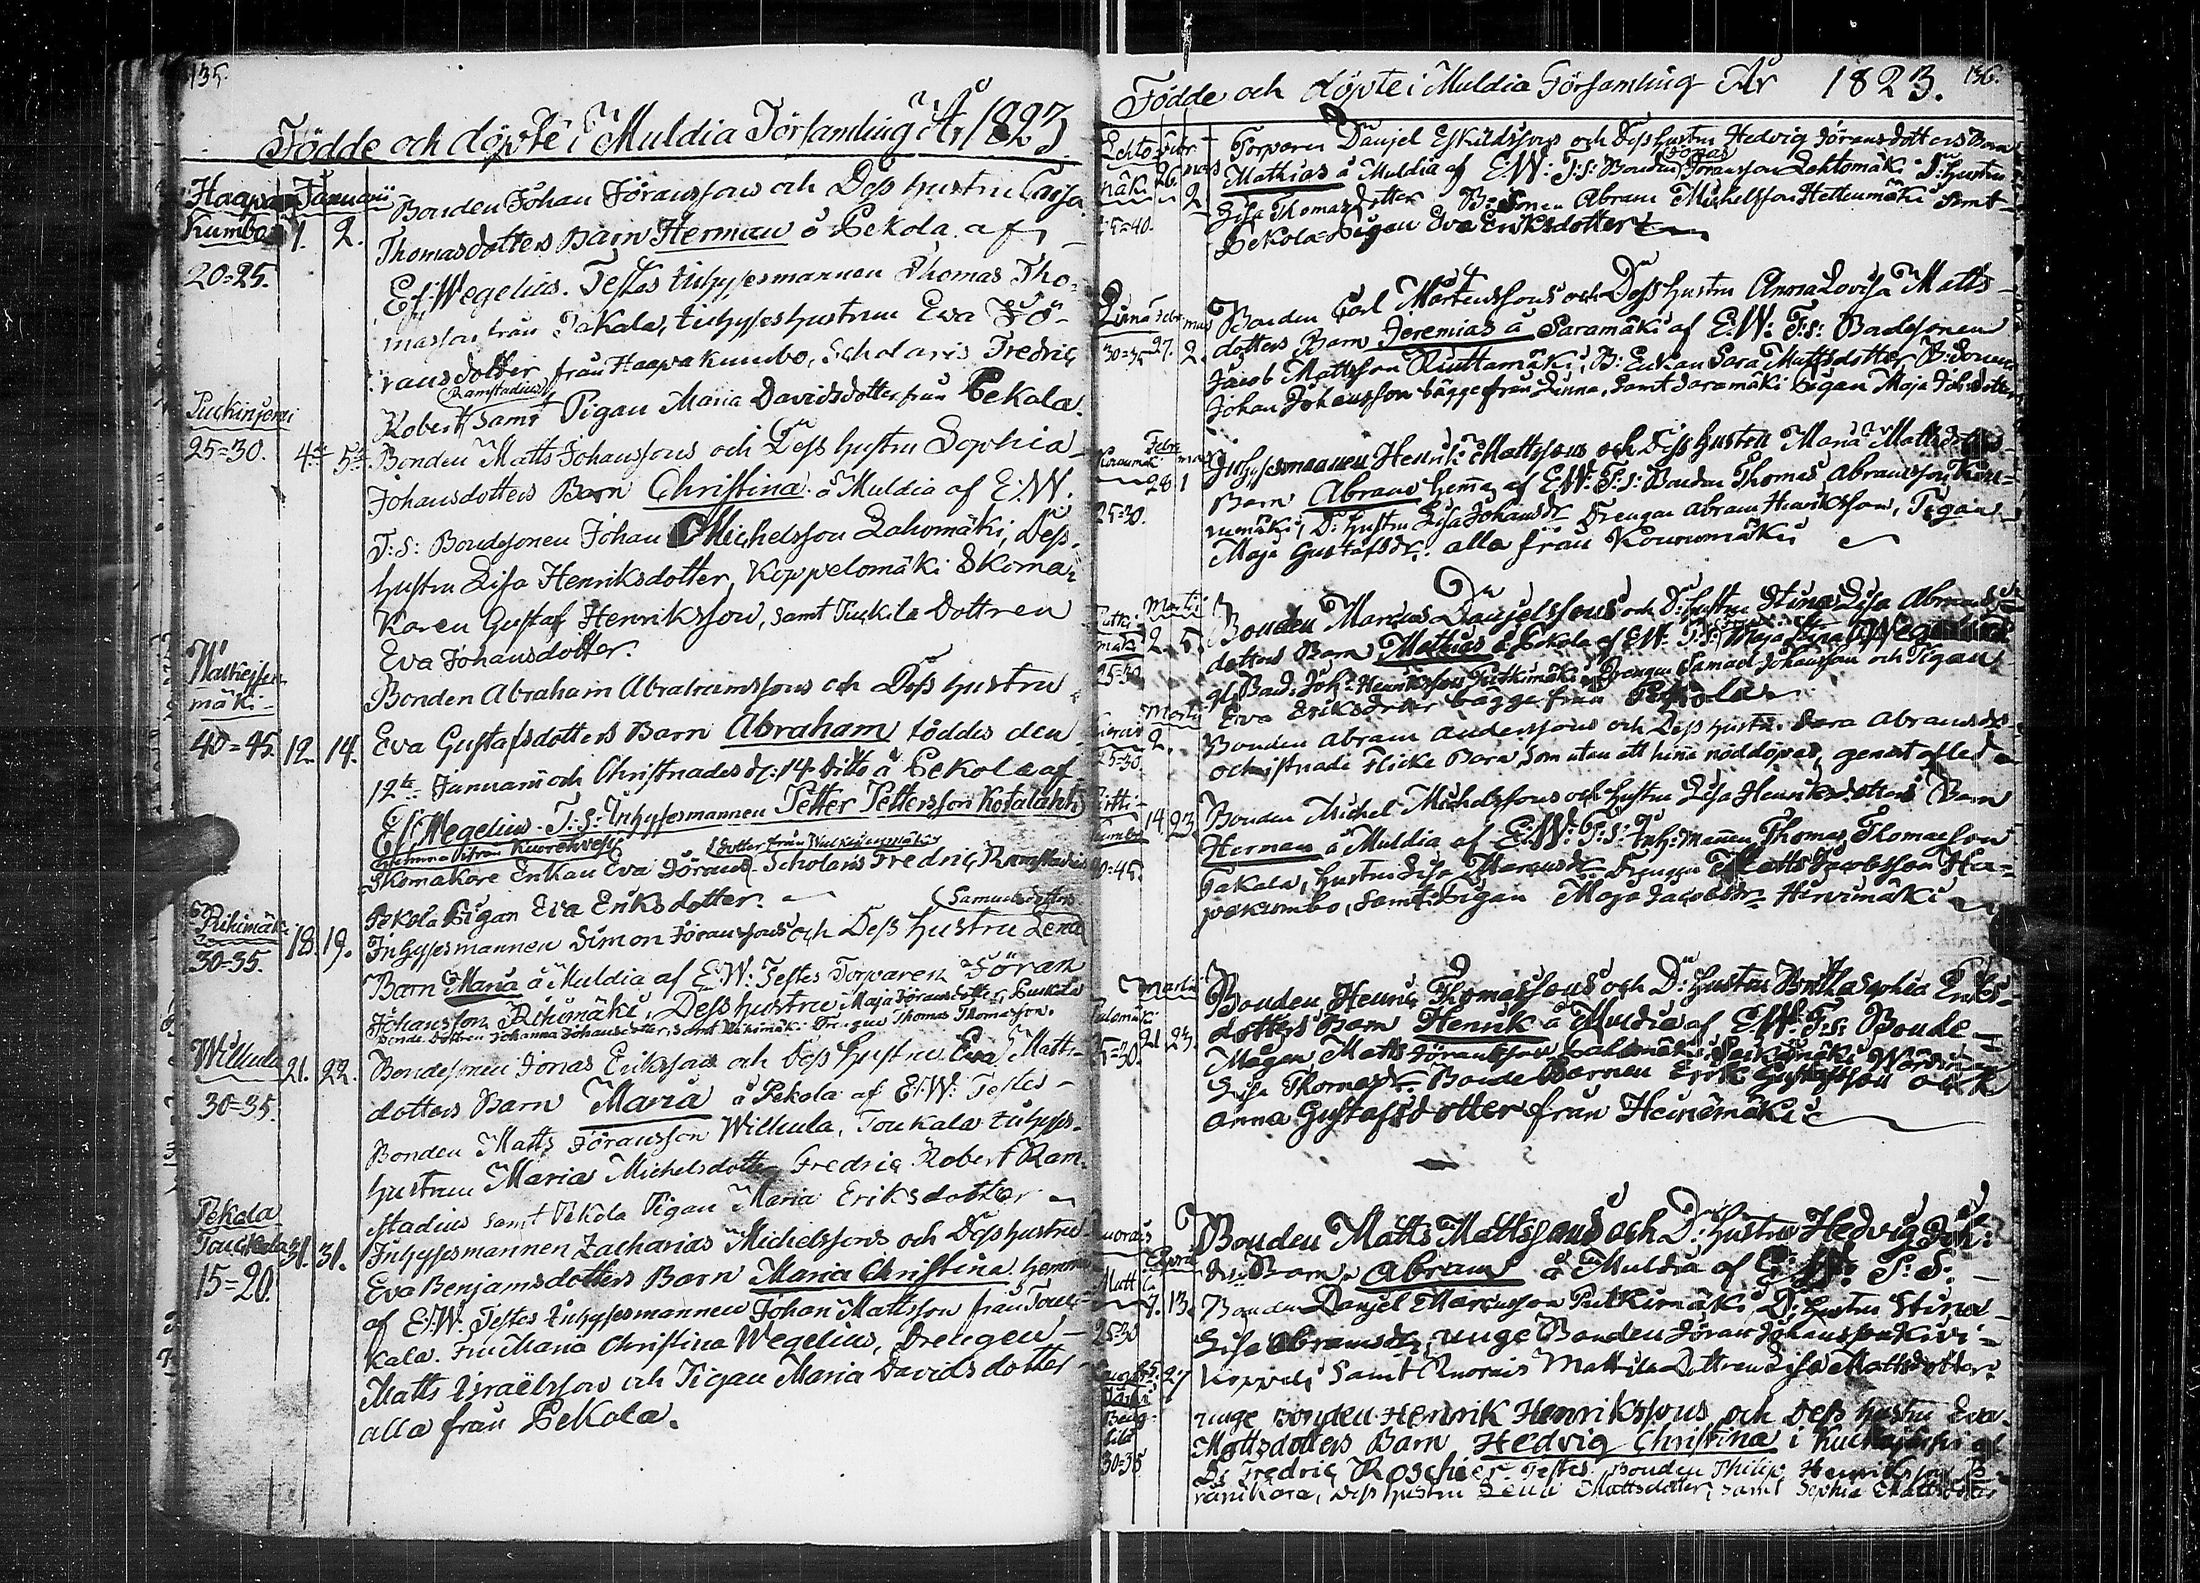 135.
Födde och döpte i Muldia Församling År 1823
Haapa- Januarii
kumbo 1. 2. Bonden Johan Jöranssons och Dess hustru Caisa
Thomasdotters Barn Herman å Pekola af
20=25. Ef. Wegelius. Testes Inhysesmannen Thomas Tho-
masson från Takala, Inhyseshustrun Eva Jö-
ransdotter från Haapakumbo, Scholaris Fredric
Ramstadius
Robert samt Pigan Maria Davidsdotter från Pekola.
25=30. 4de 5te Bonden Matts Johanssons och Dess hustru Sophia
Johansdotters Barn Christina å Muldia af E:W.
T:s: Bondesonen Johan Michelsson Lahomäki, Dess
hustru Lisa Henriksdotter, Koppelomäki Skoma-
karen Gustaf Henriksson, samt Puckila Dottren
Eva Johansdotter.
mäki Bonden Abraham Abrahamssons och Dess hustru
40=45. 12. 14. Eva Gustafsdotters Barn Abraham föddes den
12te Januarii och Christnades d: 14 ditto å Pekola af
Ef. Wegelius. T:S: Inhysesmannen Petter Pettersson Kotalahti
Skomakare Enkan Eva Jörans- Scholaris Fredric Ramstadius
Pekola Pigan Eva Eriksdotter.
Samuelsdotters
Rihimäki 18. 19. Inhysesmannen Simon Jöranssons och Dess hustru Lena
30=35. Barn Maria å Muldia af E:W: Testes Torparen Jöran
Johansson Rihimäki, Dess hustru Maja Jöransdotter, Puckila
Bonde Dottren Johanna Johansdotter, samt Rihimäki Drengen Thomas Thomasson.
Wilkula 21. 22. Bondesonen Jonas Erikssons och Dess hustru Eva Matts-
30=35. dotters Barn Maria å Pekola af Ef:W: Testes
Bonden Matts Jöransson Wilkula, Toukala Inhyses-
hustrun Maria Michelsdotter Fredric Robert Ram-
stadius samt Pekola Pigan Maria Eriksdotter
Pekola
Touckala 31. 31. Inhysesmannen Zacharias Michelssons och Dess hustru
15=20. Eva Benjamsdotters Barn Maria Christina hemma
af Ef:W. Testes Inhysesmannen Johan Mattsson från Touc-
kala. Fru Maria Christina Wegelius, Drengen
Matts Israëlsson och Pigan Maria Davidsdotter
alla från Pekola.
136.
Födde och döpte i Muldia Församling År 1823.
Lehto- Febr. Torparen Danjel Eskildssons och Dess hustru Hedvig Jöransdotters Barn
mäki 26. 2. Mathias å Muldia af E:W: T:S: Bonden Jonas Jöransson Lehtomäki D: hustru
25=40. Lisa Thomasdotter Abram Michelsson Hettenmäki Samt
Pekola Pigan Eva Eriksdotter
Linna Febr. mars Bonden Carl Mårtenssons och Dess hustru Anna Lovisa Matts-
30=35 27. 2. dotters Barn Jeremias å Saramäki af E:W: T:s: Bondesonen
Jacob Mattsson Ruuttamäki, B: Enkan Sara Mattsdotter, B: Sonen
Johan Johansson bägge från Linna, samt Saramäki Pigan Maja Johsdotter
Febr. mars Inhysesmannen Henrik Mattssons och Dess hustru Maria Mattsdotters
28. 1 Barn Abram hemma af E:W: T:S: Bonden Thomas Abramsson Koni-
25=30. mäki, D: hustru Lisa Johansdr. Drengen Abram Henriksson, Pigan
Maja Gustafsdr: alla från
Martii Bonden Marcus Danjelssons och D: hustru Stina Lisa Abrams-
2. 5. dotters Barn Mathias å Pekola af E:W: T:s:
25=30 Drengen Samuel Johansson och Pigan
Eva Eriksdotter bägge från Pekola
Martii
2. Bonden Abram Anderssons och Dess hustru Sara Abramsdr
25=30. ochristnade Flicke Barn, som utan att hinna nöddöpas, genast afled
Bonden Michel Michelssons och hustru Lisa Henriksdotters Barn
14. 23. Herman å Muldia af E:W: T:S: Inh: mannen Thomas Thomasson
40=45. Takala, hustru Lisa Marcusdr. Drengen Matts Jacobsson Haa-
pakumbo, samt Pigan Maja Jacobsdr. Hirvimäki
Martii Bonden Henric Thomassons och D: hustru Britha Sophia Eriks-
21. 23. dotters Barn Henrik å Muldia af E:W: T:s: Bonde-
25=30. Mågen Matts Jöransson
Lisa Thomasdr. Bonde Barnen Erik Gustafsson och
Anna Gustafsdotter från Heinämäki
Bonden Matts Mattssons och D: hustru Hedvig Joh:
dr: Barn Abram å Muldia af E:W: T:S:
7. 13. Bonden Danjel Marcusson Putkimäki, D: hustru Stina
25=30 Lisa Abramsdr, unge Bonden Jöran Johansson Kivi-
koppeli, samt Dottren Lisa Mattsdotter.
27 unge Bonden Henrik Henrikssons och Dess hustru Eva
Mattsdotters Barn Hedvig Christina i
30=35 Fredric Roschier. Testes. Bonden Philip Henriksson
Dess hustru Lena Mattsdotter, samt Sophia Mattsdotter